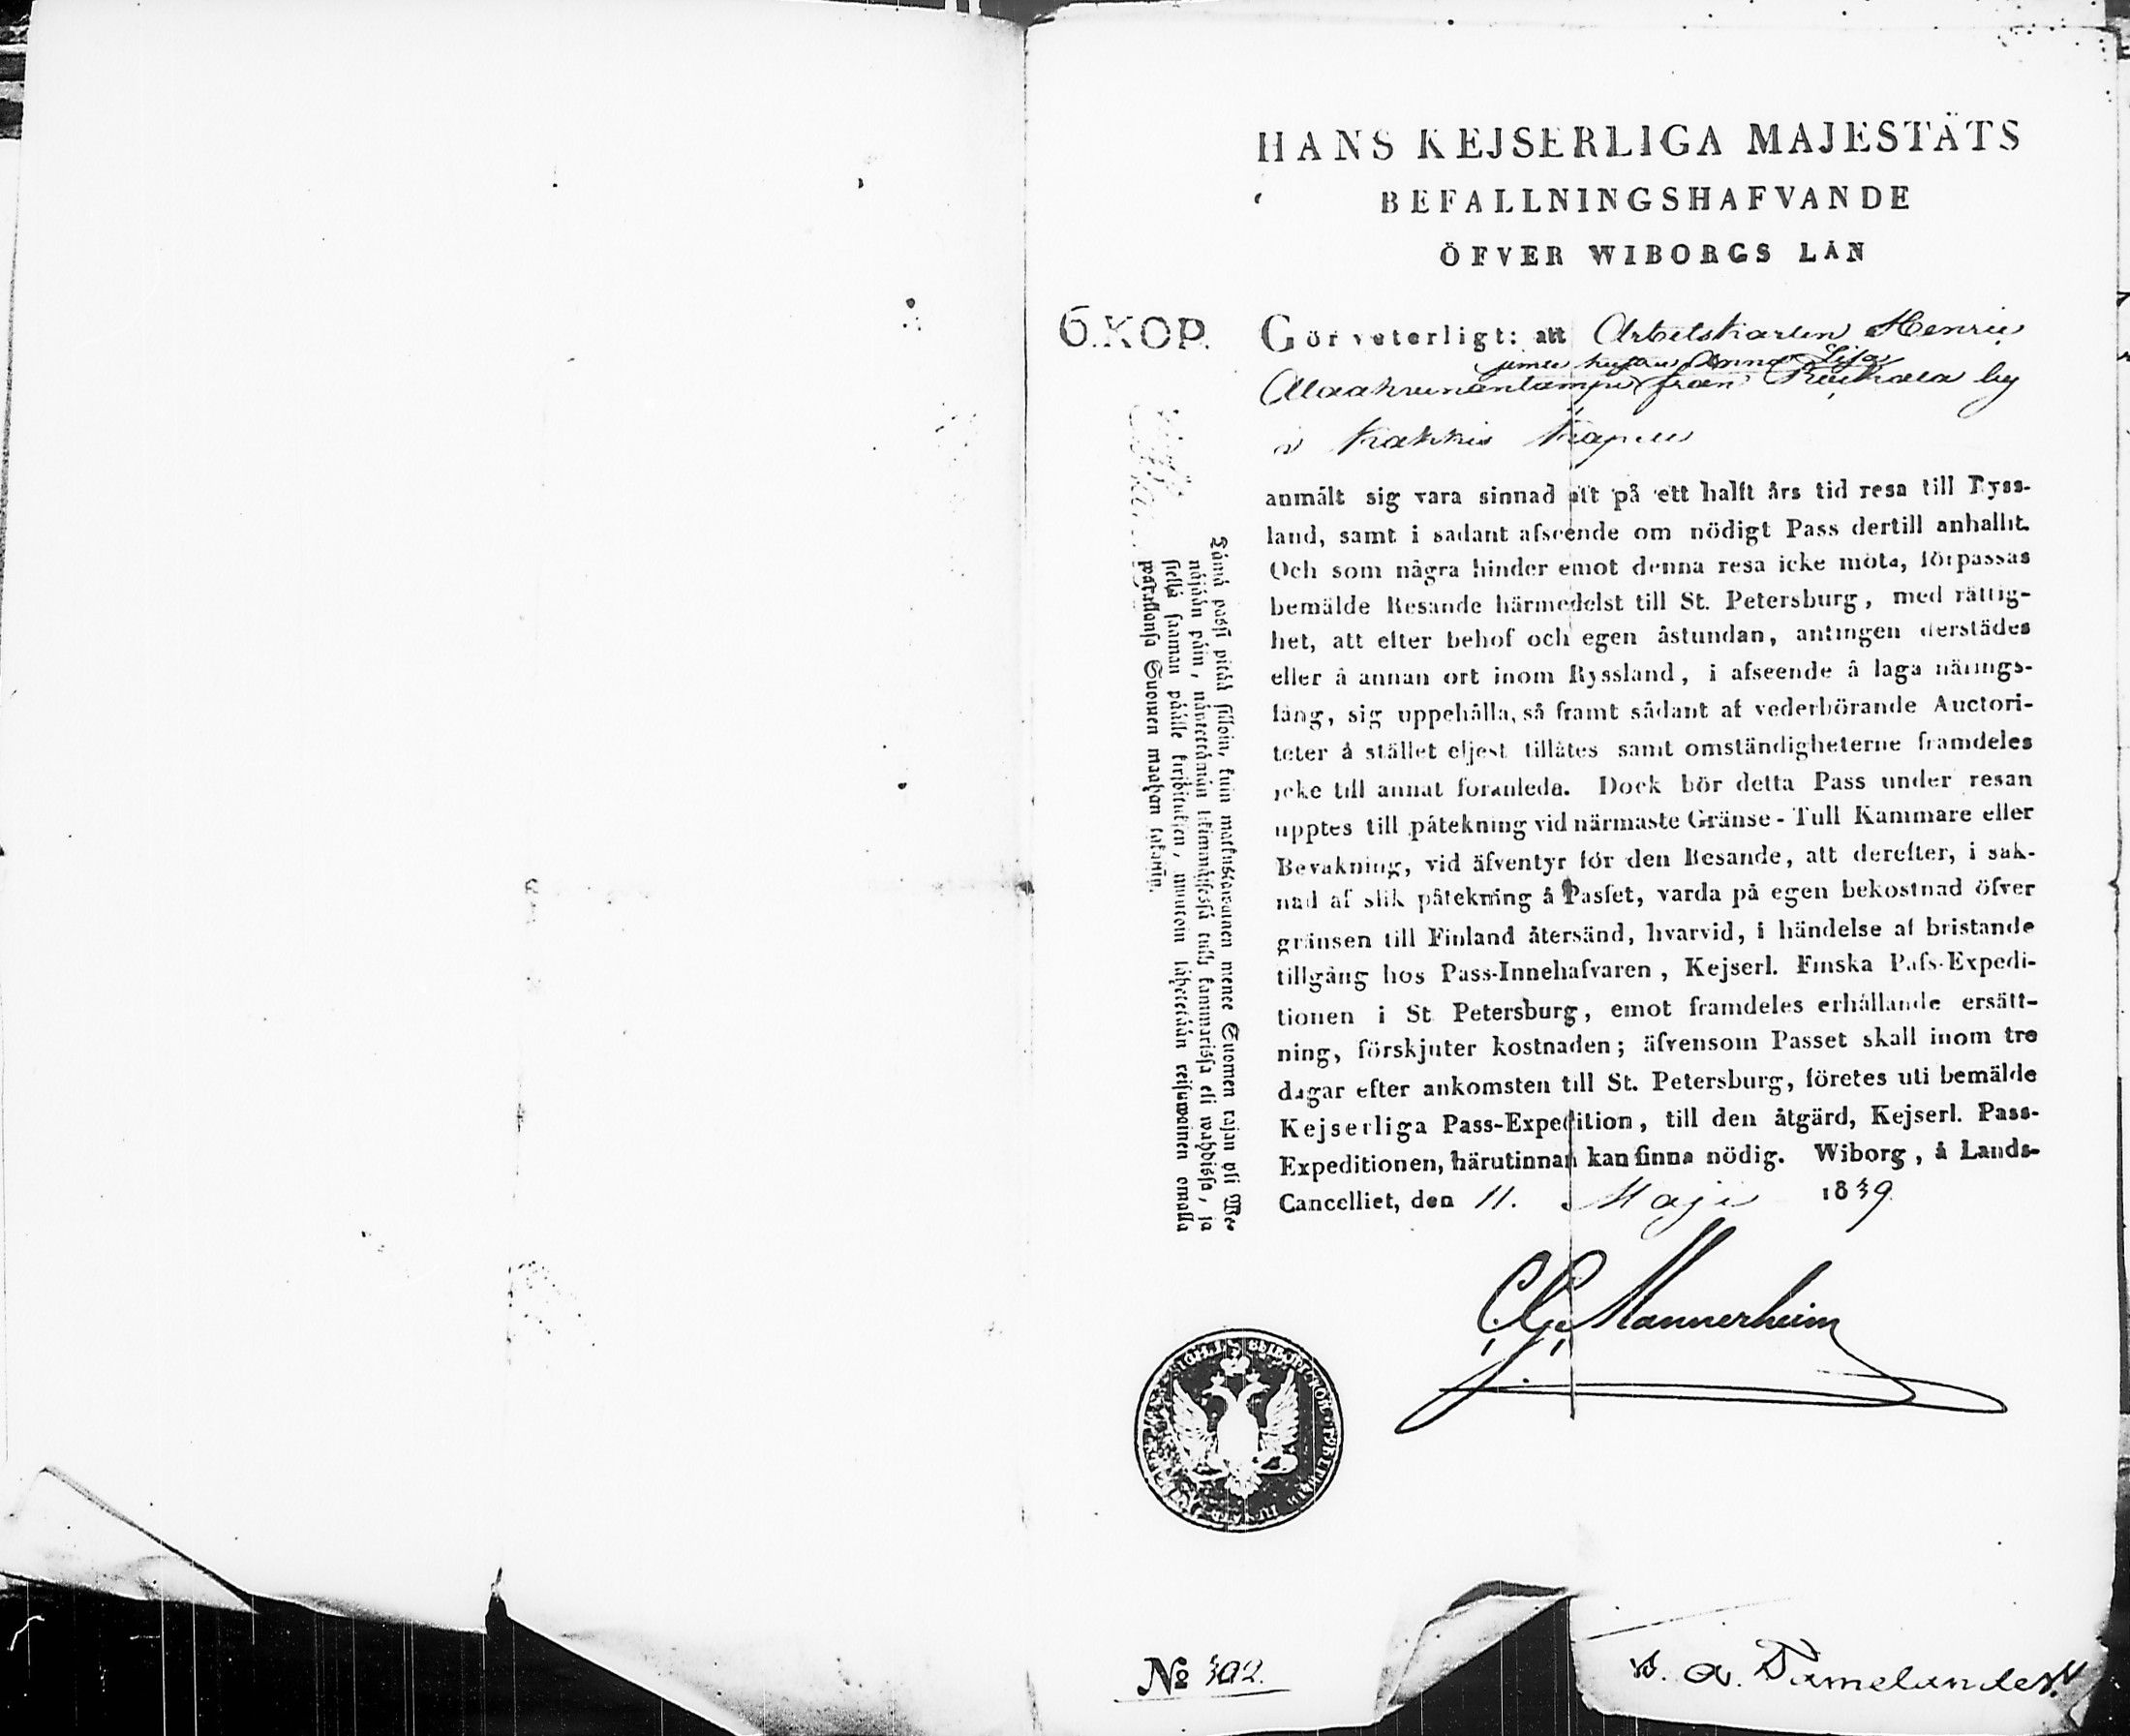 HANS KEJSERLIGA MAJESTÄTS
BEFALLNINGSHAFVANDE
ÖFVER WIBORGS LÄN
6.KOP.
Gör veterligt: att Arbetskarlen Henric
jemte hustru Anna Lisa
från by
i Kakkis Kapell
anmält sig vara sinnad att på ett halft års tid resa till Ryss-
land, samt i sådant afseende om nödigt Pass dertill anhållit.
Och som några hinder emot denna resa icke möta, förpassas
bemälde Resande härmedelst till St. Petersburg, med rättig-
het, att efter behof och egen åstundan, antingen derstädes
eller å annan ort inom Ryssland, i afseende å laga närings-
fång, sig uppehålla, så framt sådant af vederbörande Auctori-
teter å stället eljest tillåtes samt omständigheterne framdeles
icke till annat föranleda. Dock bör detta Pass under resan
upptes till påtekning vid närmaste Gränse-Tull Kammare eller
Bevakning, vid äfventyr för den Resande, att derefter, i sak-
nad af slik påtekning å Passet, varda på egen bekostnad öfver
gränsen till Finland återsänd, hvarvid, i händelse af bristande
tillgång hos Pass-Innehafvaren, Kejserl. Finska Pass-Expedi-
tionen i St. Petersburg, emot framdeles erhållande ersätt-
ning, förskjuter kostnaden; äfvensom Passet skall inom tre
dagar efter ankomsten till St. Petersburg, företes uti bemälde
Kejserliga Pass-Expedition, till den åtgärd, Kejserl. Pass-
Expeditionen, härutinnan kan finna nödig. Wiborg, å Lands-
Cancelliet, den 11. Maji 1839.
Tämä passi pitää silloin, kuin matkustavainen menee Suomen rajan yli We-
näjään päin, näytettämän likimmäisessä tulli kammarissa eli wahdissa, ja
siellä saaman päälle kirjoituksen, muutoin lähetetään reisuwainen omalla
Suomen maahan takaisin.
C. G. Mannerheim
№ 302.